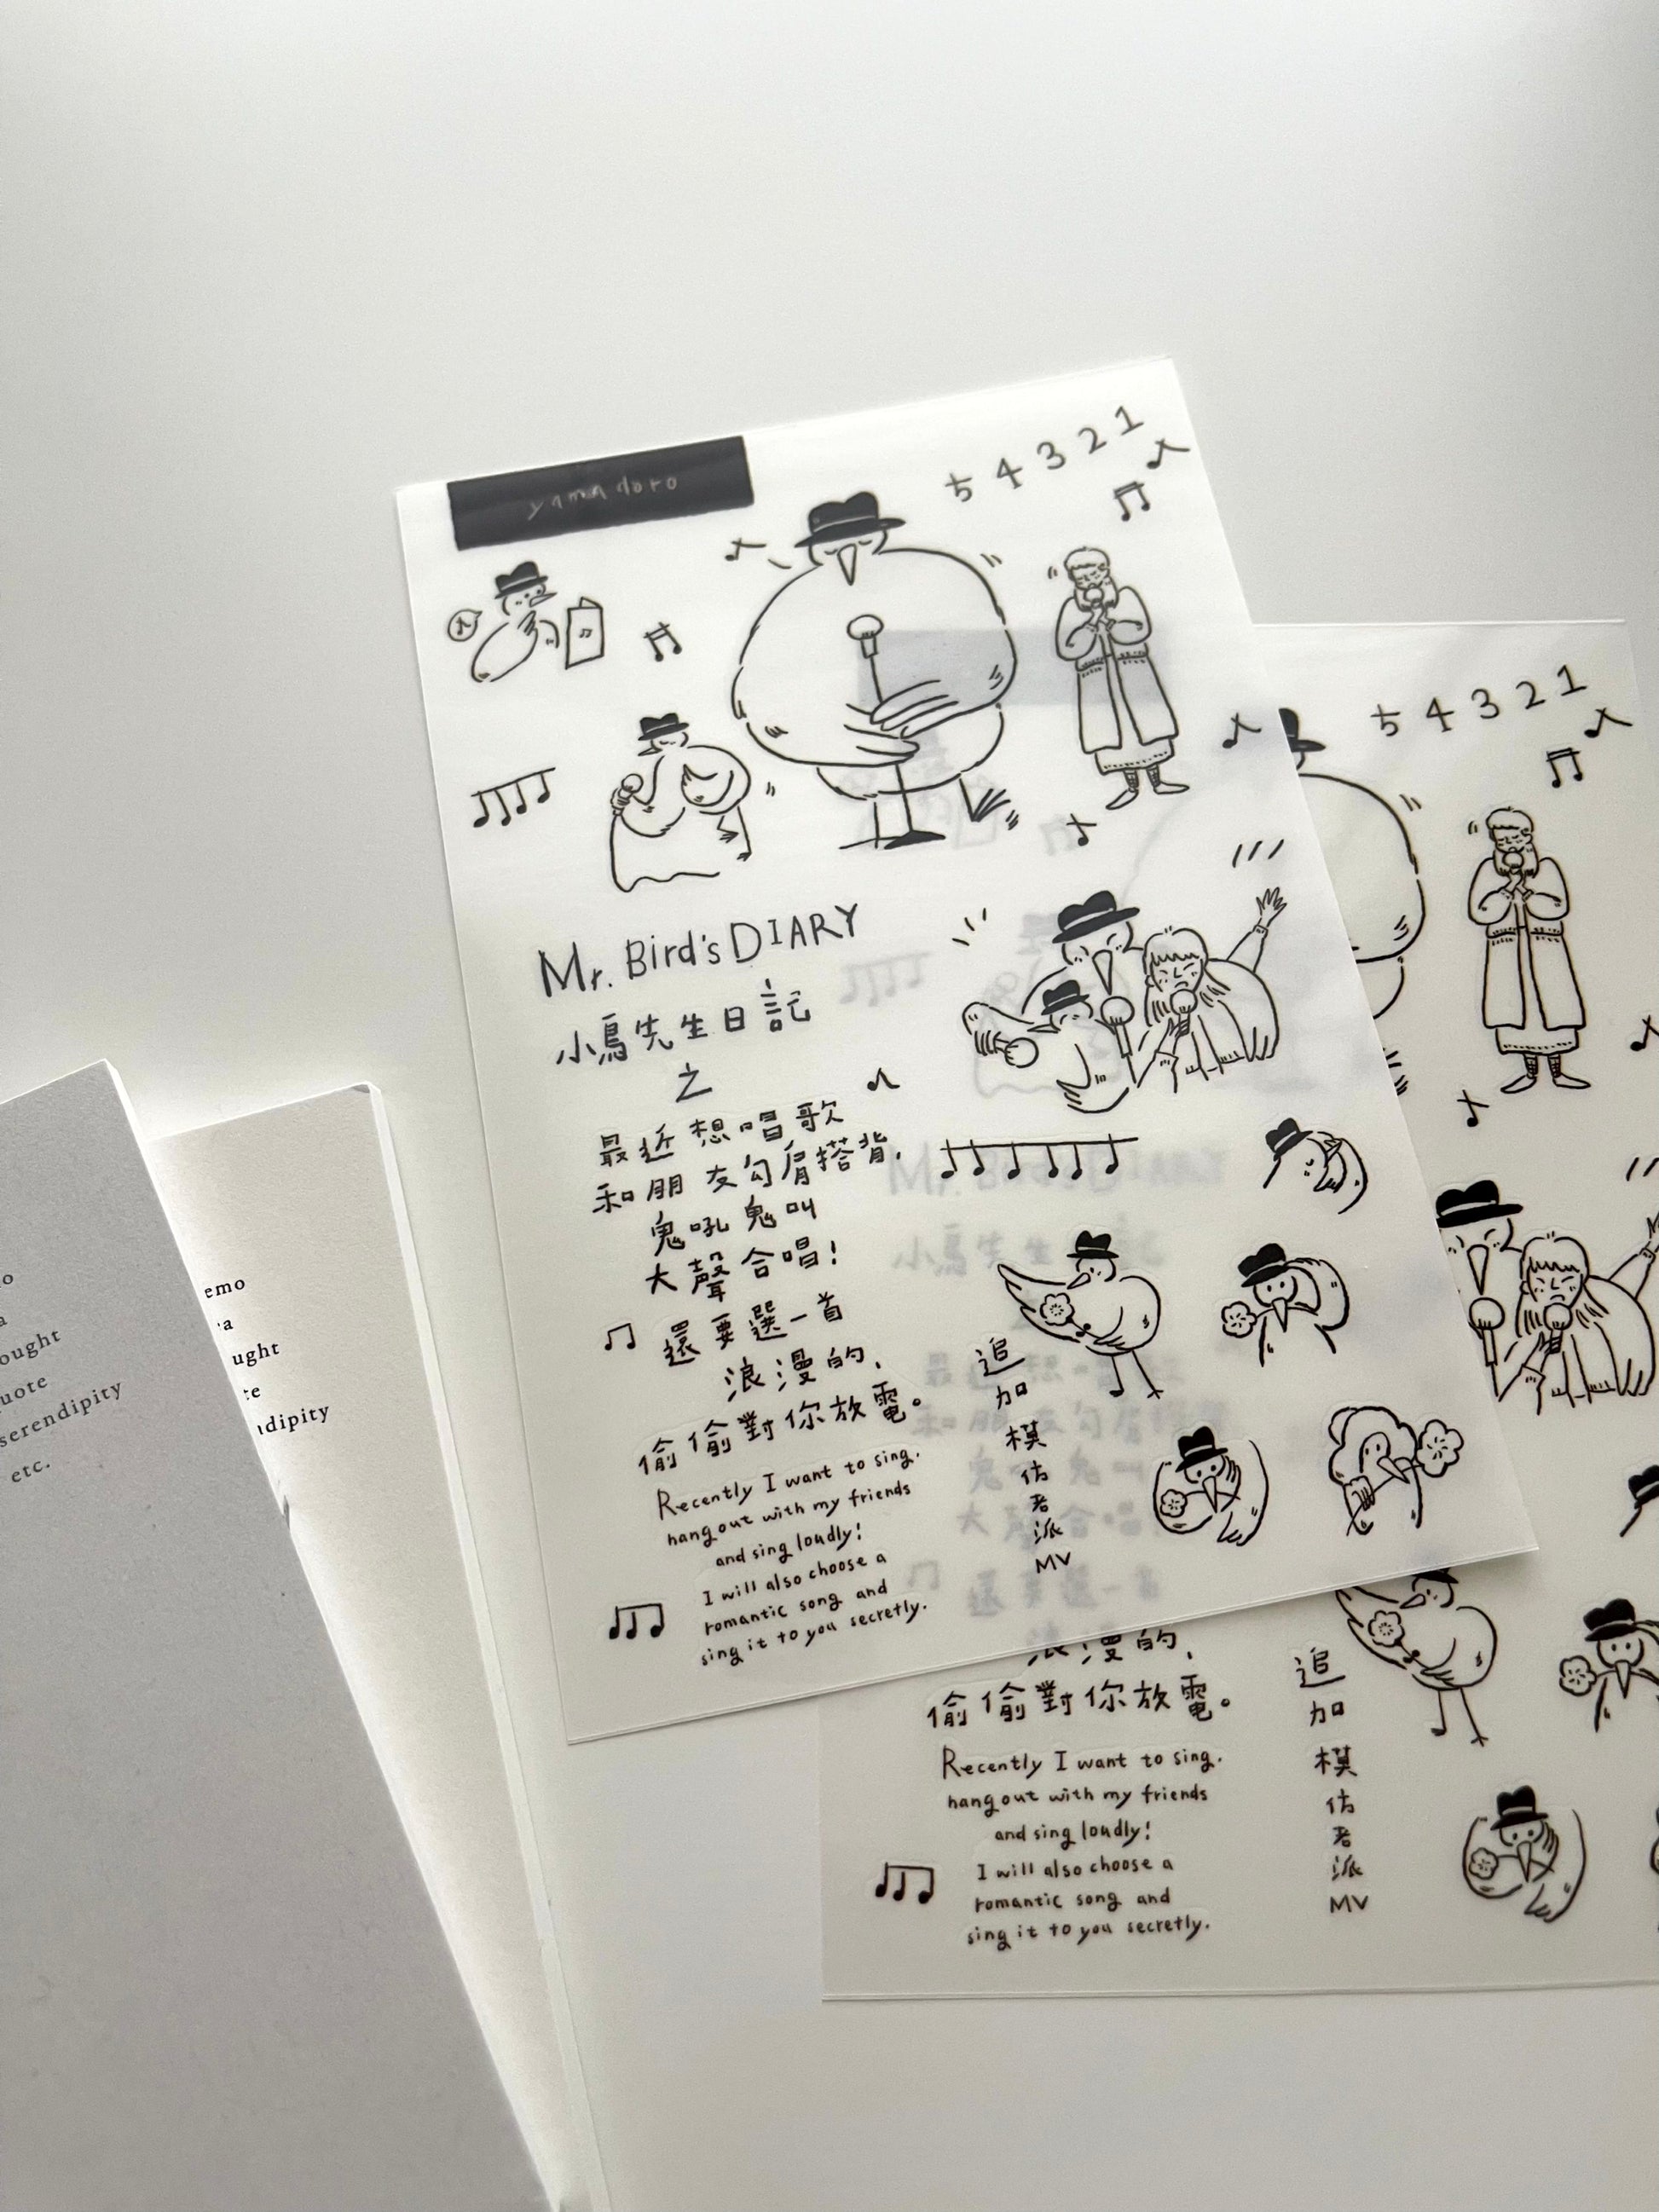 yamadoro
5 4 3 2 1
Mr. Bird's DIARY
小鳥先生日記
之
最近想唱歌
和朋友勾肩搭背,
鬼吼鬼叫
大聲合唱!
還要選一首
浪漫的,
偷偷對你放電。
Recently I want to sing.
hang out with my friends
and sing loudly!
I will also choose a
romantic song and
sing it to you secretly.
追
加
模
仿
老
派
MV
5 4 3 2 1
浪漫的,
偷偷對你放電。
Recently I want to sing.
hang out with my friends
and sing loudly!
I will also choose a
romantic song and
sing it to you secretly.
追
加
模
仿
老
派
MV
ought
uote
serendipity
etc.
emo
a
ught
te
dipity